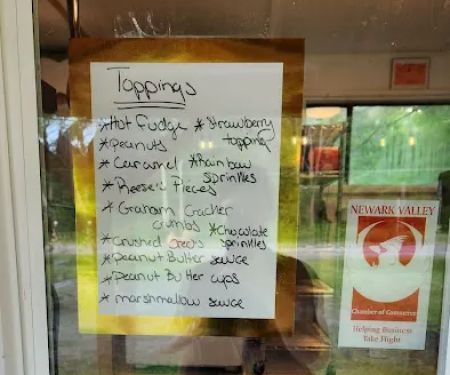 Toppings
* Hot Fudge * Strawberry
topping
* Peanuts
* Caramel * Rainbow
sprinkles
* Reese's Pieces
* Graham Cracker
crumbs * Chocolate
sprinkles
* crushed Oreos
* Peanut Butter sauce
* Peanut Butter cups
* marshmallow sauce
NEWARK VALLEY
Chamber of Commerce
Helping Business
Take Flight